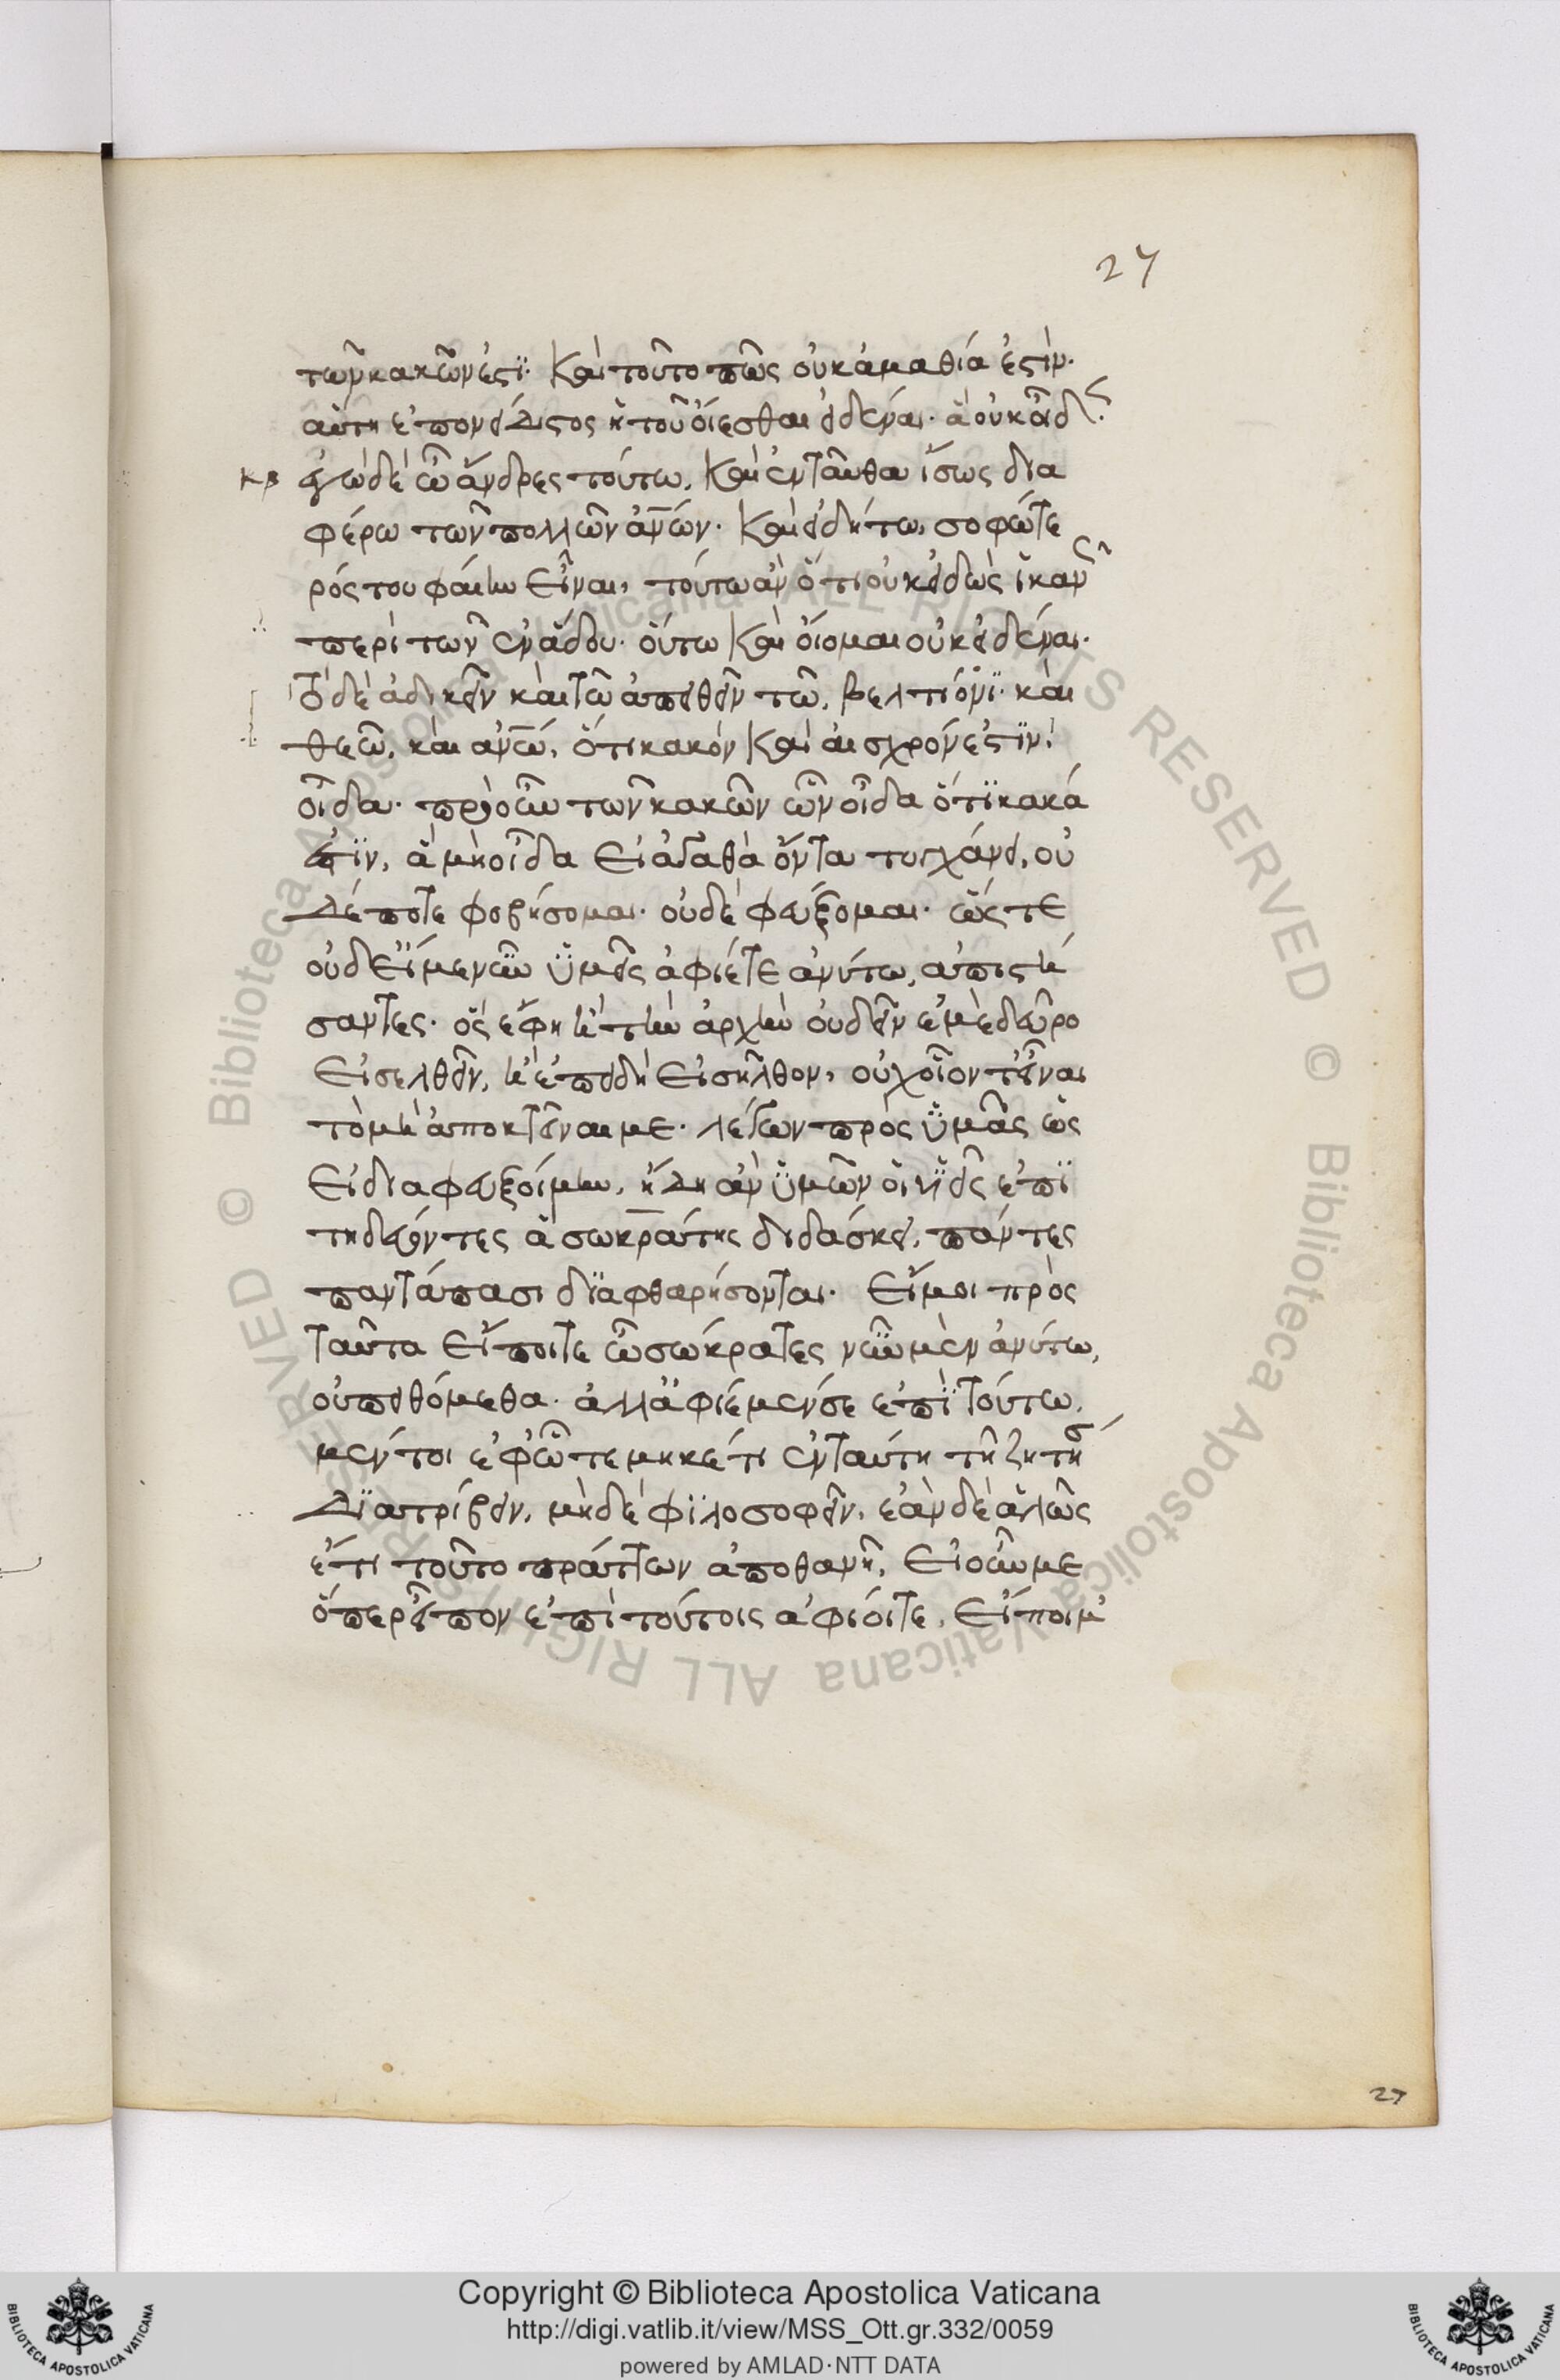 27
τῶν κακῶν ἐστί· Καὶ τοῦτο πῶς οὐκ ἀμαθία ἐστὶν·
αὕτη ἐπονείδιστος ἡ τοῦ οἴεσθαι εἰδέναι· ἃ οὐκ οἶδ
κβ ἐγὼ δὲ ὦ ἄνδρες τούτω, Καὶ ἐνταῦθα ἴσως δια
φέρω τῶν πολλῶν ἀν̅ων· Καὶ εἰ δή τω, σοφώτε
ρός του φαίην εἶναι, τούτω ἂν ὅτι οὐκ εἰδὼς ἱκανῶς
περὶ τῶν ἐν ἅδου· οὕτω Καὶ οἴομαι οὐκ εἰδέναι·
τὸ δὲ ἀδικεῖν καὶ τῶ ἀπειθεῖν τῶ, βελτίονϊ· καὶ
θεῶ, καὶ ἀν̅ω, ὅτι κακὸν Καὶ αἰσχρόν ἐστϊν·
οἶδα· πρὸ οὖν τῶν κακῶν ὧν οἶδα ὅτϊ κακά
ἐστϊν, ἃ μὴ οἶδα εἰ ἀγαθὰ ὄντα τυγχάνει, οὐ
δέποτε φοβήσομαι· οὐδὲ φεύξομαι· ὥστε
οὐδ' εἴ με νῦν ὑμεῖς ἀφίετε ἀνύτω, ἀπιστή
σαντες· ὃς ἔφη ἢ τὴν ἀρχὴν οὐδεῖν ἐμὲ δεῦρο
εἰσελθεῖν, ἢ ἐπειδὴ εἰσῆλθον, οὐχ οἷόν τ' εἶναι
τὸ μὴ ἀποκτεῖναί με· λέγων πρὸς ὑμᾶς ὡς
εἰ διαφευξοίμην, ἤδη ἂν ὑμῶν οἱ υἱεῖς ἐπϊ
τηδεύοντες ἃ σωκράτης διδάσκει, πάντες
παντάπασι δϊαφθαρήσονται· εἴ μοι πρὸς
ταῦτα εἴποιτε ὦ σώκρατες νῦν μὲν ἀνύτω,
οὐ πειθόμεθα· ἀλλ' ἀφίεμέν σε ἐπὶ τούτω,
μέντοι ἐφ' ὧτε μηκέτι ἐν ταύτη τῆ ζητήσ
δϊατρίβειν, μηδὲ φϊλοσοφεῖν, ἐὰν δὲ ἁλῶς
ἔτι τοῦτο πράττων ἀποθανῆ, εἰ οὖν με
ὅπερ εἶπον ἐπὶ τούτοις ἀφίοιτε, εἴποιμ'
27
Copyright © Biblioteca Apostolica Vaticana
http://digi.vatlib.it/view/MSS_Ott.gr.332/0059
powered by AMLAD·NTT DATA